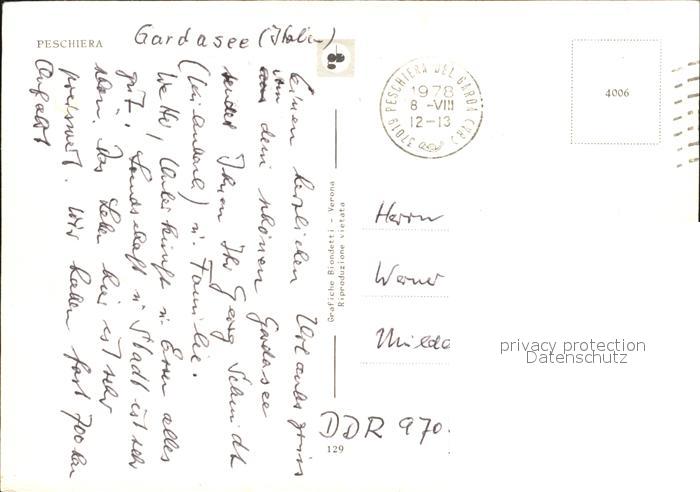 PESCHIERA
Gardasee (Italien)
Einen herzlichen Urlaubsgruß
vom dem schönen Gardasee
sendet Ihnen Ihr Georg Schmidt
u. Familie.
Wetter, Unterkunft u. Essen alles
gut. Landschaft u. Stadt ist sehr
schön. Das Leben hier ist sehr
preiswert. Wir haben fast 700 km
37019 PESCHIERA DEL GARDA (VR)
1978
8 -VIII
12-13
4006
Grafiche Biondetti - Verona
Riproduzione vietata
Herrn
Werner
Milde
privacy protection
Datenschutz
DDR 970
129